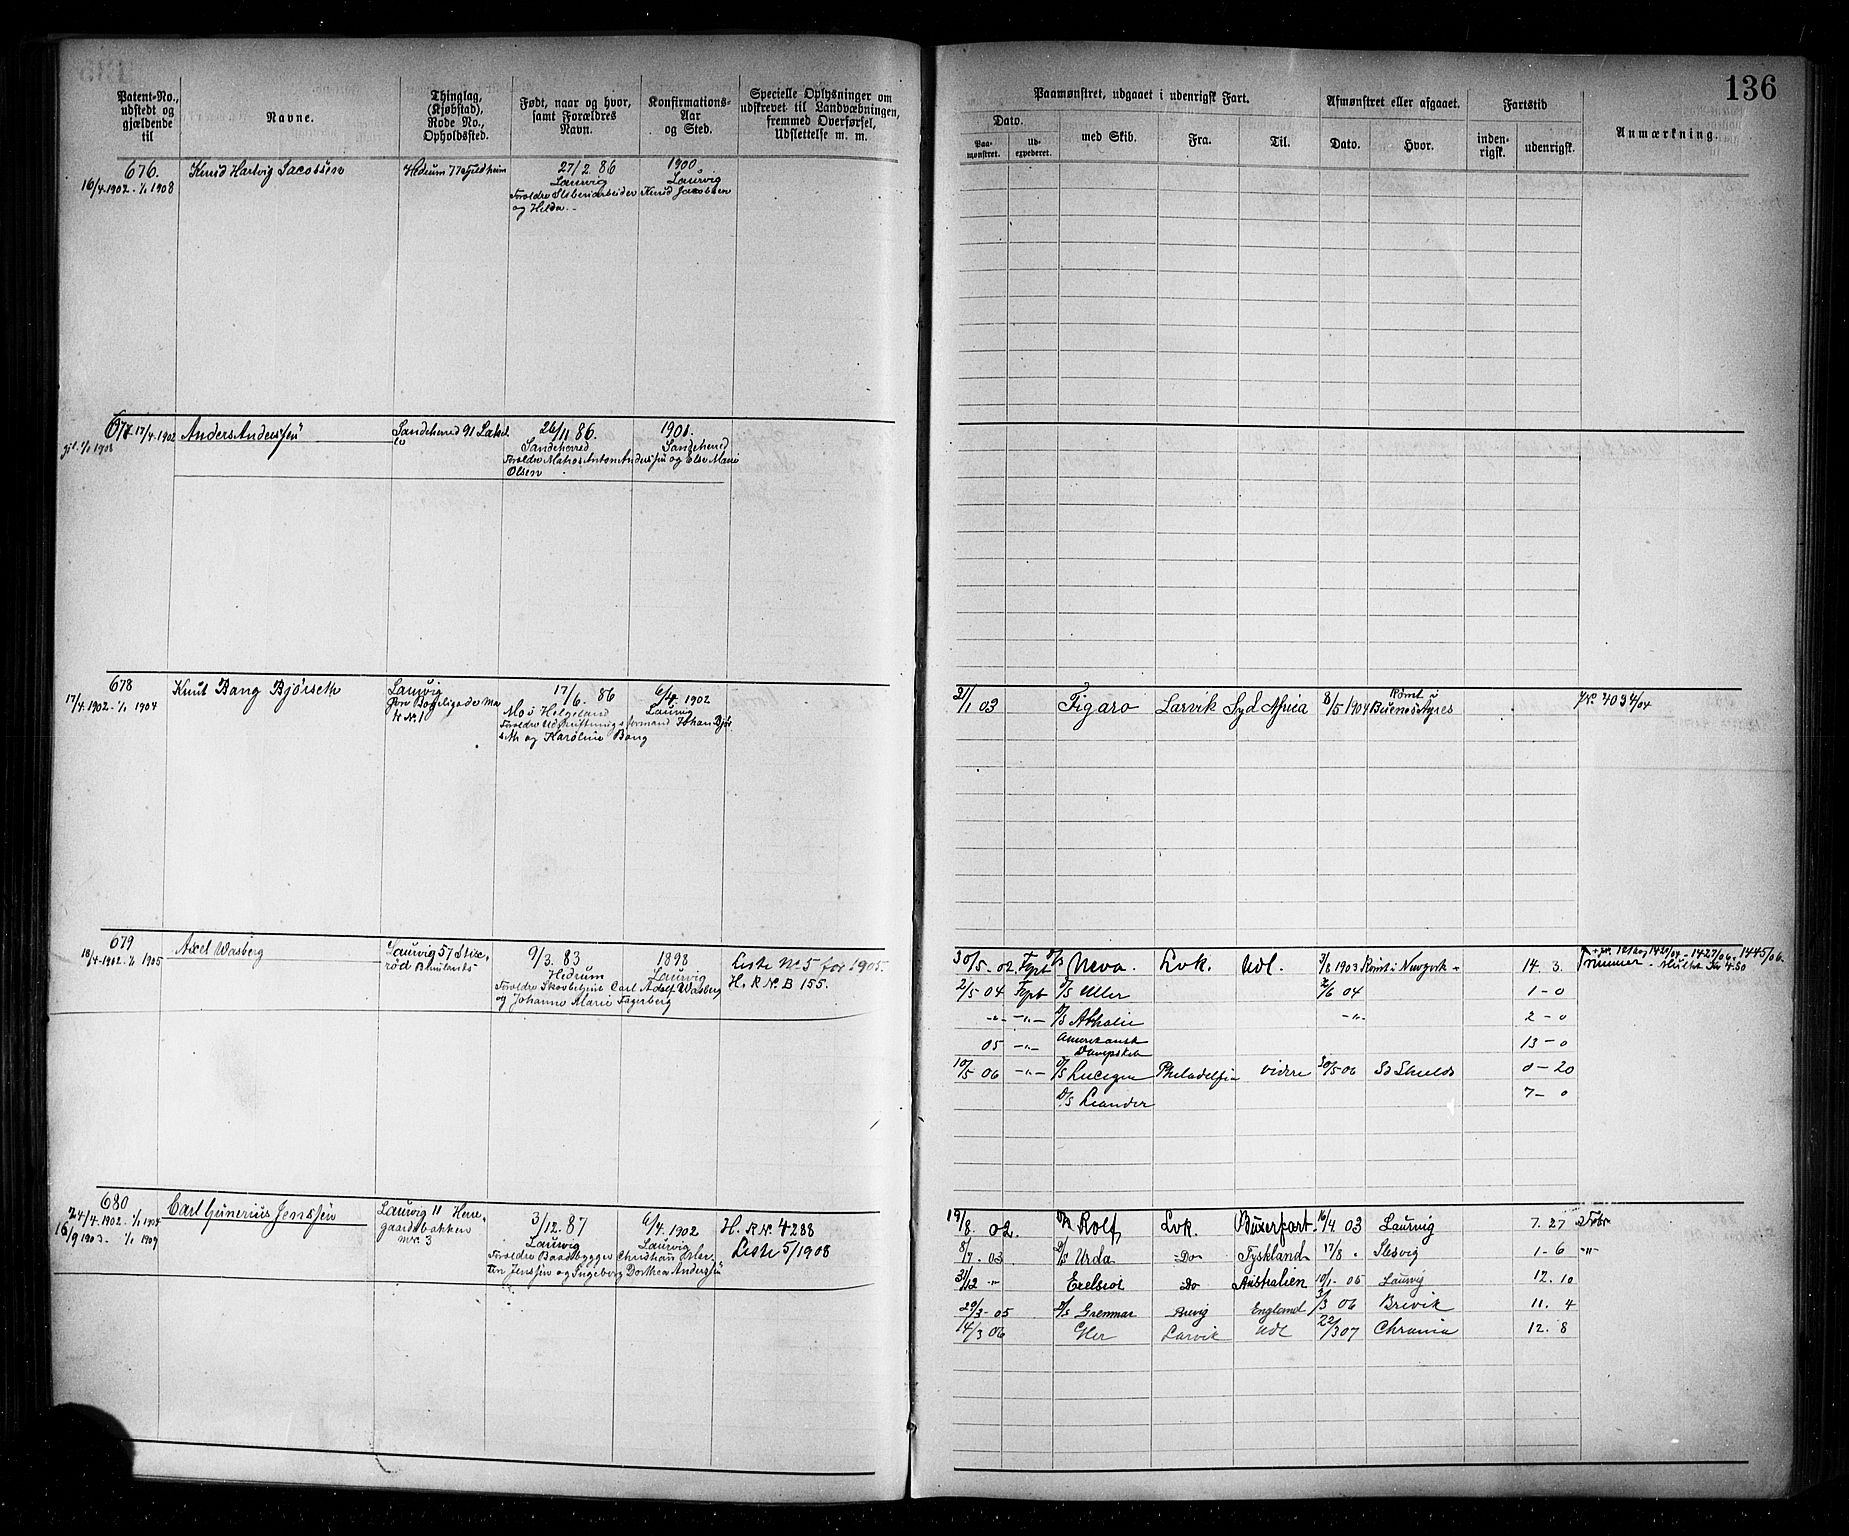 136
Patent-No., udstedt og gjældende til
Navne.
Thinglag, (Kjøbstad), Rode No., Opholdssted.
Født, naar og hvor, samt Forældres Navn.
Konfirmations- Aar og Sted.
Specielle Oplysninger om udskrevet til Landvæbningen, fremmed Overførsel, Udslettelse m. m.
Paamønstret, udgaaet i udenrigsk Fart.
Dato.
Paa- mønstret.
Ud- expederet.
med Skib.
Fra.
Til.
Afmønstret eller afgaaet.
Dato.
Hvor.
Fartstid
inden- rigsk.
udenrigsk.
Anmærkning.
676.
16/4 1902 - 1/1 1908
Knud Hartvig Jacobsen
Hedrum 77
27/2 86
Laurvig
1900
Laurvig
Forældre Knud Jacobsen
og Hilda
677 17/4 1902
1/1 1908
Anders Anderssen
Sandeherred 91
26/11 86.
Sandeherred
1901
Sandeherred
Forældre Matros Anton Anderssen og Else Marie
Olsen
678
17/4 1902 - 1/1 1904
Knut Bang Bjørseth
Laurvig
No. 1
17/6 86
Mo i Helgeland
6/4 1902
Laurvig
Forældre Johan Bjør
seth og Karoline Bang
21/1 03
Figaro
Larvik
Syd Africa
8/5 1904
Rømt i
Buenos Ayres
4094/04
679
18/4 1902 - 1/1 1905
Axel Wasberg
Laurvig 57
9/3. 83
Hedrum
1898
Laurvig
Forældre Carl Adolf Wasberg
og Johanne Marie Fagerberg
Liste No. 5 for 1905.
H. R. No. B 155.
30/5 - 02
D/S Neva.
Lvk.
Udl.
3/8 1903
Rømt i Newyork
14. 3.
2/5 04
D/S Uller
2/6 04
1 - 0
D/S Athalie
2 - 0
05
Amerikansk
Dampskib
13 - 0
10/5 06
Philadelfia
videre
30/5 06
So Shields
0 - 20
D/S Leander
7 - 0
680
24/4 1902 - 1/1 1904
16/9 1903 - 1/1 1909
Carl Gunerius Jenssen
Laurvig 11 Herre-
gaardsbakken
No. 3
3/12. 87
Laurvig
6/4. 1902
Laurvig
Forældre Baadbygger Christian
Jenssen og Ingeborg Dorthea Anderssen
H. R. No. 4288
Liste 5/1908
19/8 02.
Rolf
Lvk.
16/4 03
Laurvig
7. 27
8/7 - 03
D/S Urda
Do
Tyskland
17/8
Slesvig
1 - 6
31/12
Do
Australien
10/1 - 05
Laurvig
12. 10
29/3 - 05
D/S Grenmar
England
3/3 06
Brevik
11. 4
14/3 06
Larvik
Udl
22/3 07
Chrania
12. 8